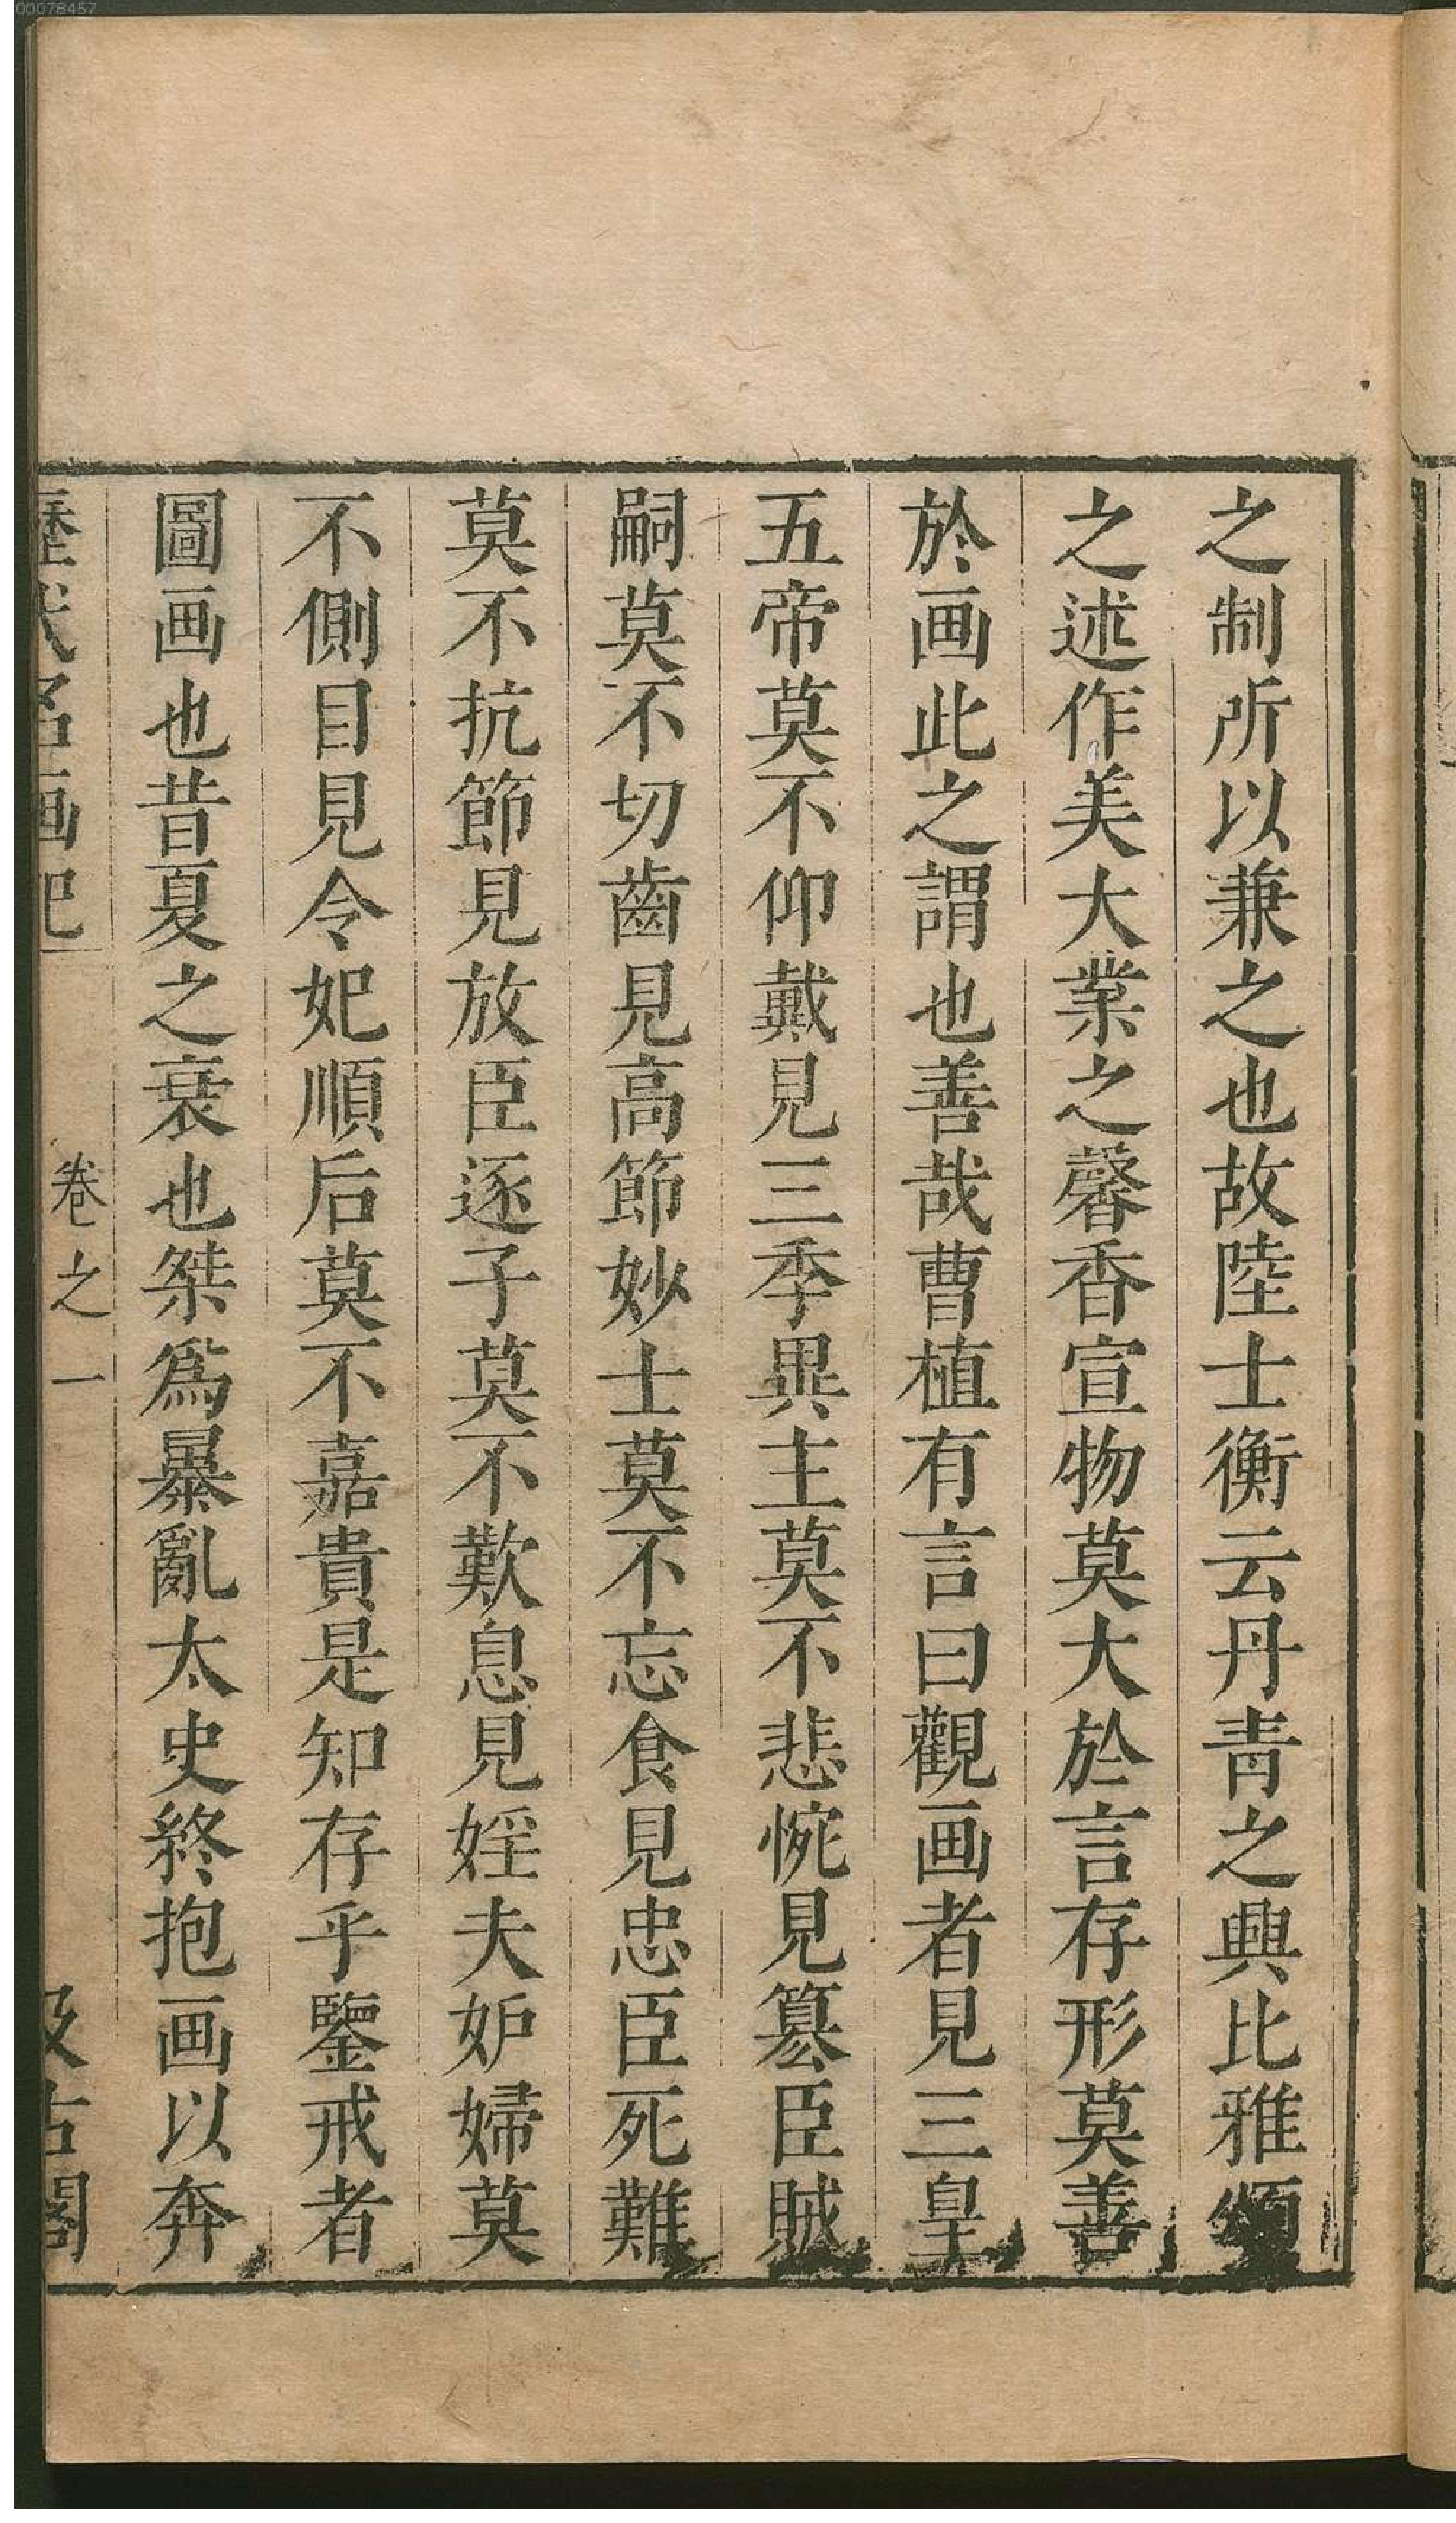 00078457
之制所以兼之也故陸士衡云丹青之興比雅頌
之述作美大業之馨香宣物莫大於言存形莫善
於画此之謂也善哉曹植有言曰觀画者見三皇
五帝莫不仰戴見三季異主莫不悲惋見篡臣賊
嗣莫不切齒見高節妙士莫不忘食見忠臣死難
莫不抗節見放臣逐子莫不歎息見婬夫妒婦莫
不側目見令妃順后莫不嘉貴是知存乎鑒戒者
圖画也昔夏之衰也桀爲暴亂太史終抱画以奔
歷代名画記 卷之一 汲古閣